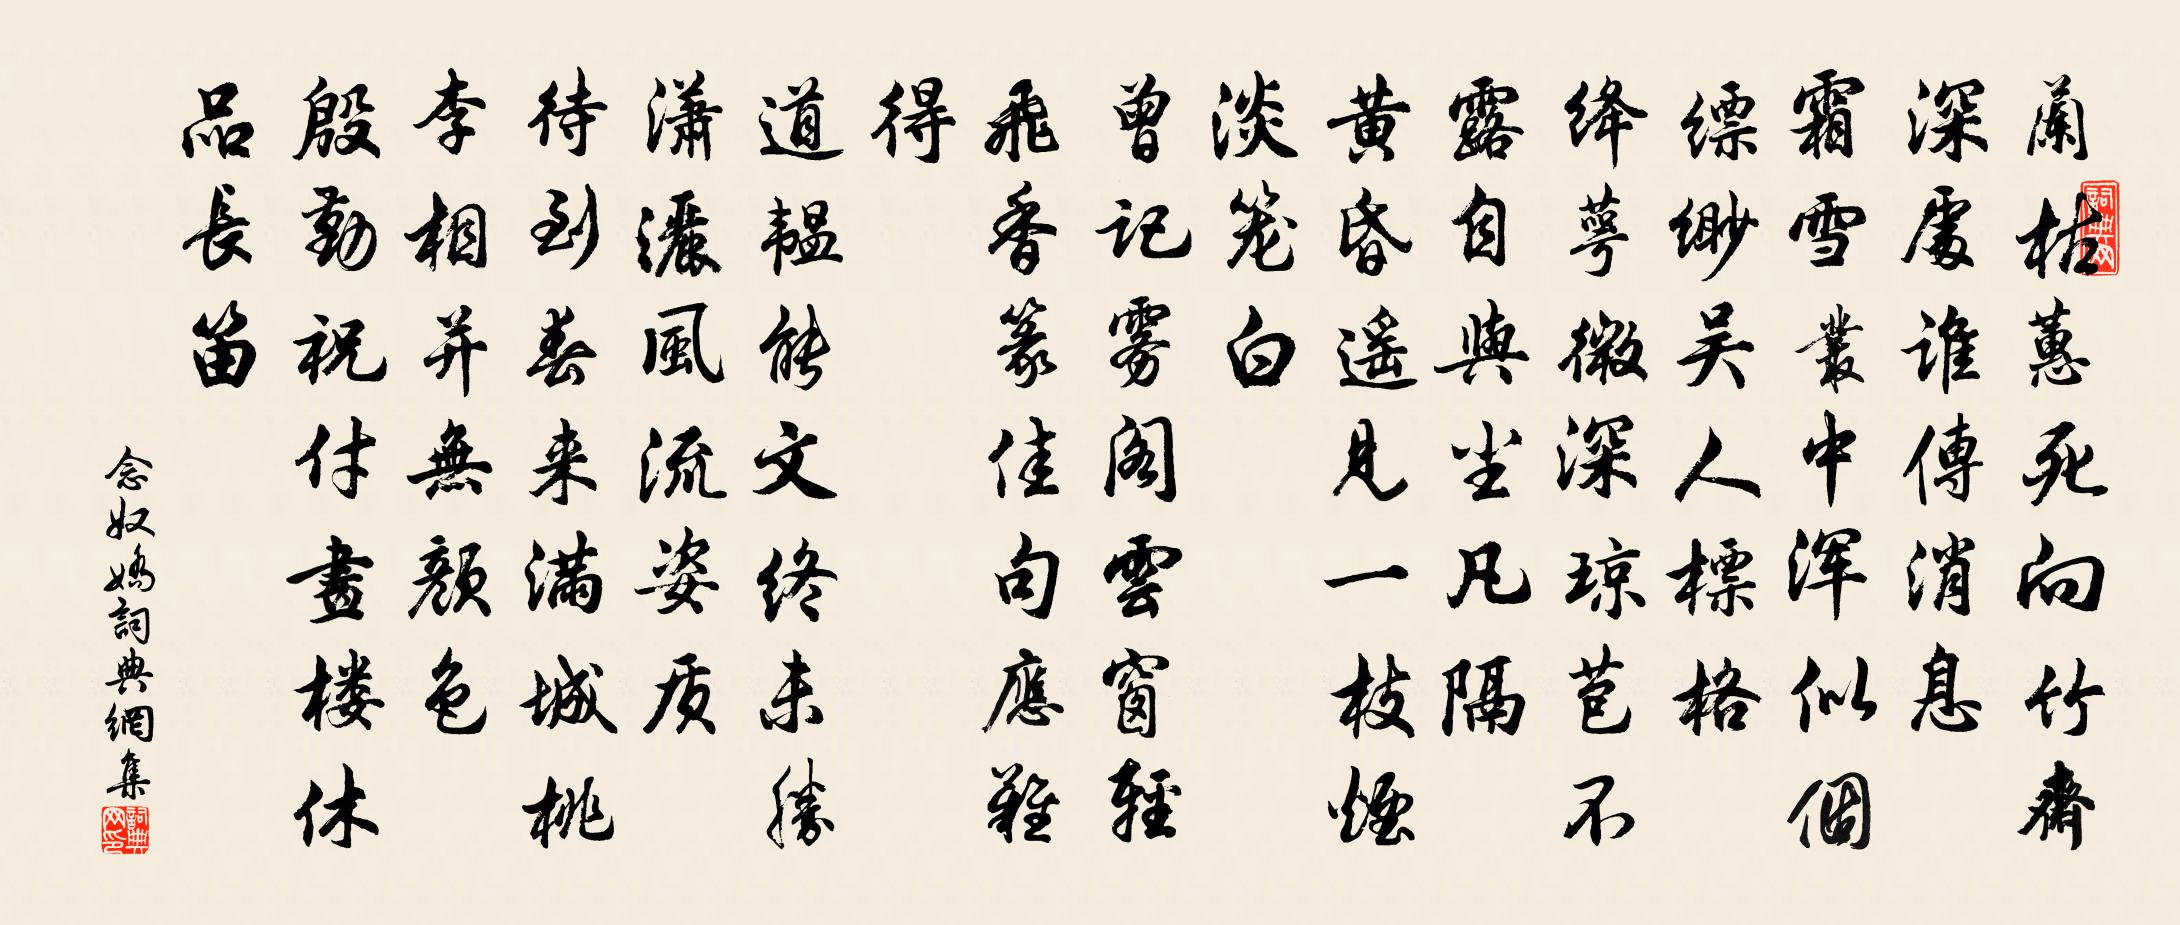 蘭枯蕙死向竹齋
深處誰傳消息
霜雪叢中渾似個
缥緲吴人標格
绛萼微深琼苞不
露自與尘凡隔
黄昏遥見一枝煙
淡笼白
曾记雾阁雲窗輕
飛香篆佳句應難
得
道韫能文终未勝
瀟灑風流姿质
待到春来满城桃
李相并無顔色
殷勤祝付畫楼休
品長笛
念奴嬌詞典網集